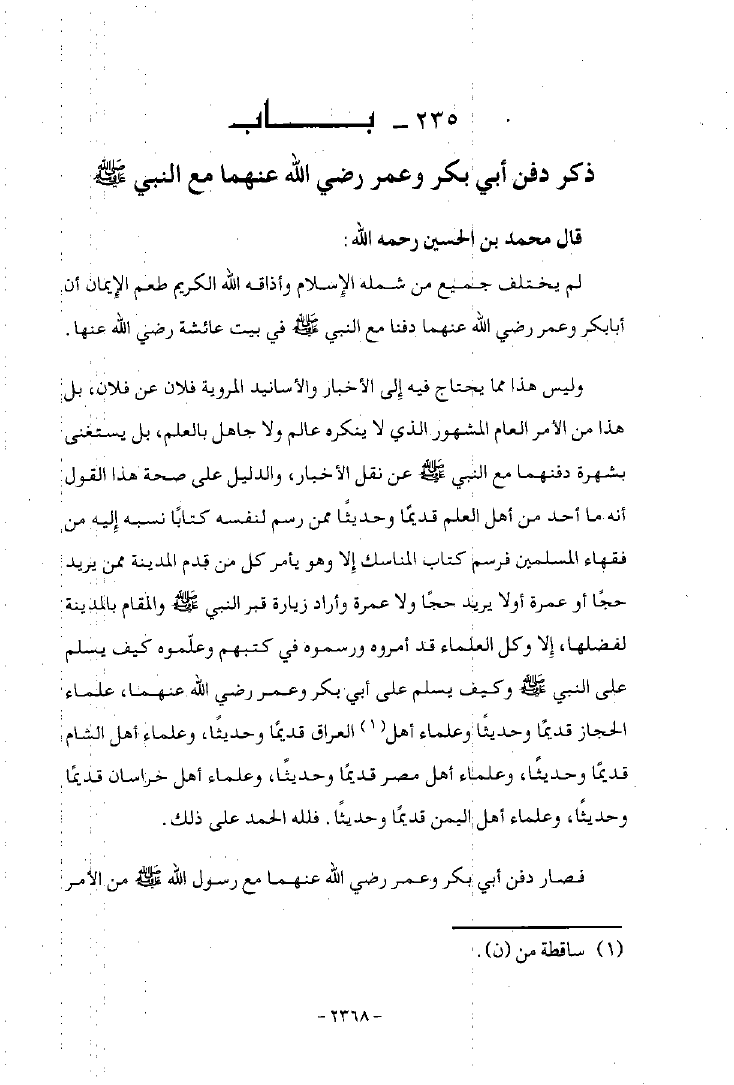 ٢٣٥ - بـــــاب
ذكر دفن أبي بكر وعمر رضي الله عنهما مع النبي ﷺ
قال محمد بن الحسين رحمه الله:
لم يختلف جميع من شمله الإسلام وأذاقه الله الكريم طعم الإيمان أن
أبابكر وعمر رضي الله عنهما دفنا مع النبي ﷺ في بيت عائشة رضي الله عنها.
وليس هذا مما يحتاج فيه إلى الأخبار والأسانيد المروية فلان عن فلان، بل
هذا من الأمر العام المشهور الذي لا ينكره عالم ولا جاهل بالعلم، بل يستغنى
بشهرة دفنهما مع النبي ﷺ عن نقل الأخبار، والدليل على صحة هذا القول
أنه ما أحد من أهل العلم قديمًا وحديثًا ممن رسم لنفسه كتابًا نسبه إليه من
فقهاء المسلمين فرسم كتاب المناسك إلا وهو يأمر كل من قدم المدينة ممن يريد
حجًا أو عمرة أولا يريد حجًا ولا عمرة وأراد زيارة قبر النبي ﷺ والمقام بالمدينة
لفضلها، إلا وكل العلماء قد أمروه ورسموه في كتبهم وعلّموه كيف يسلم
على النبي ﷺ وكيف يسلم على أبي بكر وعمر رضي الله عنهما، علماء
الحجاز قديمًا وحديثًا وعلماء أهل(١) العراق قديمًا وحديثًا، وعلماء أهل الشام
قديمًا وحديثًا، وعلماء أهل مصر قديمًا وحديثًا، وعلماء أهل خراسان قديمًا
وحديثًا، وعلماء أهل اليمن قديمًا وحديثًا. فلله الحمد على ذلك.
فصار دفن أبي بكر وعمر رضي الله عنهما مع رسول الله ﷺ من الأمر
(١) ساقطة من (ن).
-٢٣٦٨-